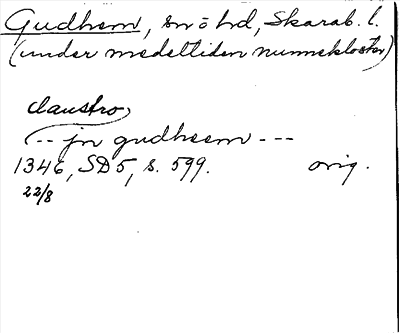 Gudhem, sn o hd, Skarab. l.
(under medeltiden nunnekloster)
claustro
(-- jn gudheem ---
1346, SD5, s. 599. orig.
22/8